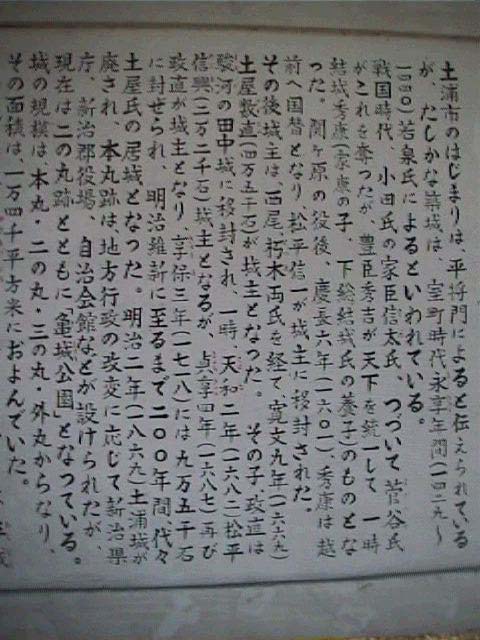 土浦市のはじまりは、平将門によると伝えられている
が、たしかな築城は、室町時代永享年間(一四二九〜
一四四〇)若泉氏によるといわれている。
戦国時代、小田氏の家臣信太氏、つづいて菅谷氏
がこれを奪つたが、豊臣秀吉が天下を統一して一時
結城秀康(家康の子、下総結城氏の養子)のものとな
つた。関ヶ原の役後、慶長六年(一六〇一)、秀康は越
前へ国替となり、松平信一が城主に移封された。
その後城主は、西尾朽木両氏を経て寛文九年(一六六九)
土屋数直(四万五千石)が城主となつた。その子政直は
駿河の田中城に移封され、一時、天和二年(一六八二)松平
信興(二万二千石)城主となるが、貞享四年(一六八七)再び
政直が城主となり、享保三年(一七一八)には九万五千石
に封せられ、明治維新に至るまで二〇〇年間、代々
土屋氏の居城となつた。明治二年(一八六九)土浦城が
廃され、本丸跡は、地方行政の改変に応じて新治県
庁、新治郡役場、自治会館などが設けられたが、
現在は二の丸跡とともに「亀城公園」となつている。
城の規模は、本丸・二の丸・三の丸・外丸からなり、
その面積は、一万四千平方米におよんでいた。